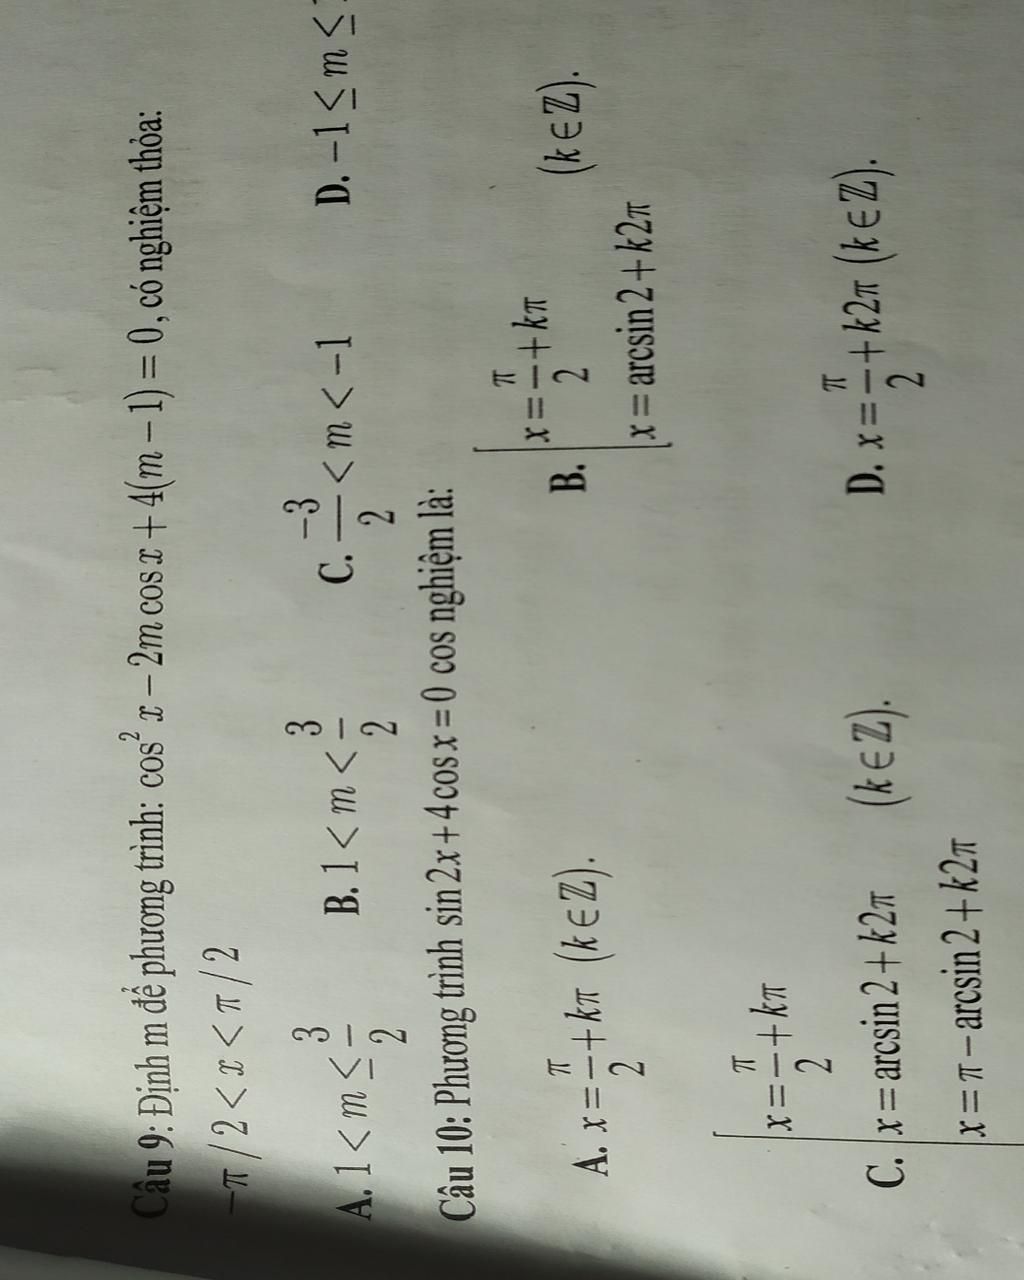 Câu 9: Định m để phương trình: cos² x − 2m cos x + 4(m − 1) = 0, có nghiệm thỏa:
−π / 2 < x < π / 2
A. 1 < m ≤ 3/2 B. 1 < m < 3/2 C. −3/2 < m < −1 D. −1 ≤ m ≤
Câu 10: Phương trình sin 2x + 4 cos x = 0 cos nghiệm là:
A. x = π/2 + kπ (k ∈ ℤ). B. [ x = π/2 + kπ
x = arcsin 2 + k2π (k ∈ ℤ).
C. [ x = π/2 + kπ
x = arcsin 2 + k2π (k ∈ ℤ). D. x = π/2 + k2π (k ∈ ℤ).
x = π − arcsin 2 + k2π